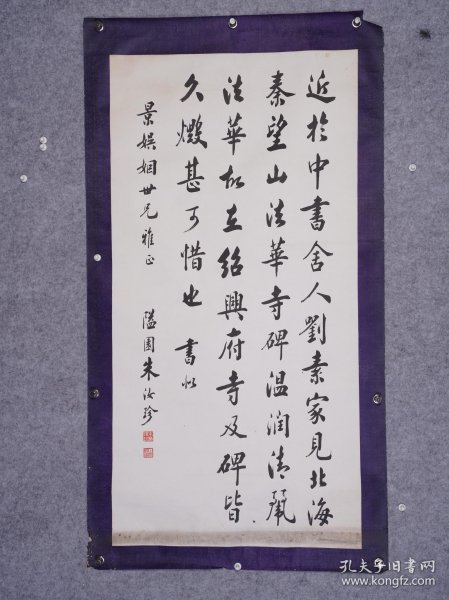 近於中書舍人劉素家見北海
秦望山法華寺碑溫潤清麗
法華故在紹興府寺及碑皆
久燬甚可惜也 書似
景娱姻世兄雅正
隘園朱汝珍
孔夫子旧书网
www.kongfz.com